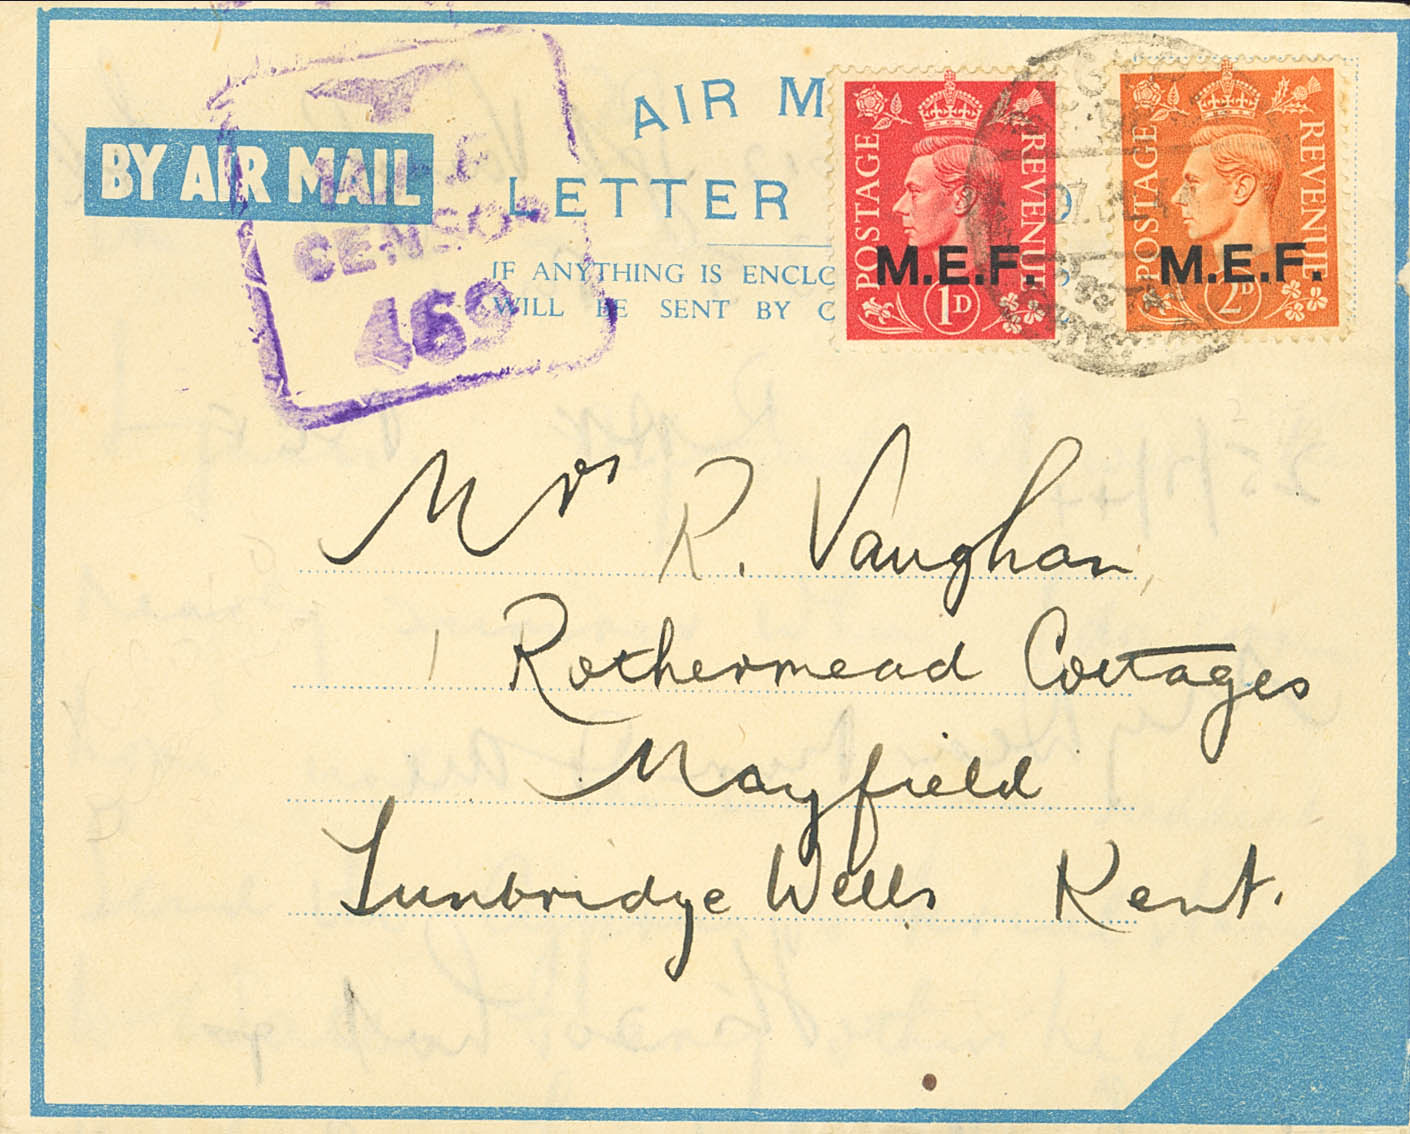 BY AIR MAIL
CENSOR
469
AIR M
LETTER
IF ANYTHING IS ENCLO
WILL BE SENT BY O
POSTAGE REVENUE
M.E.F.
1D
POSTAGE REVENUE
M.E.F.
2D
Mrs R. Vaughan
1 Rothermead Cottages
Mayfield
Tunbridge Wells Kent.